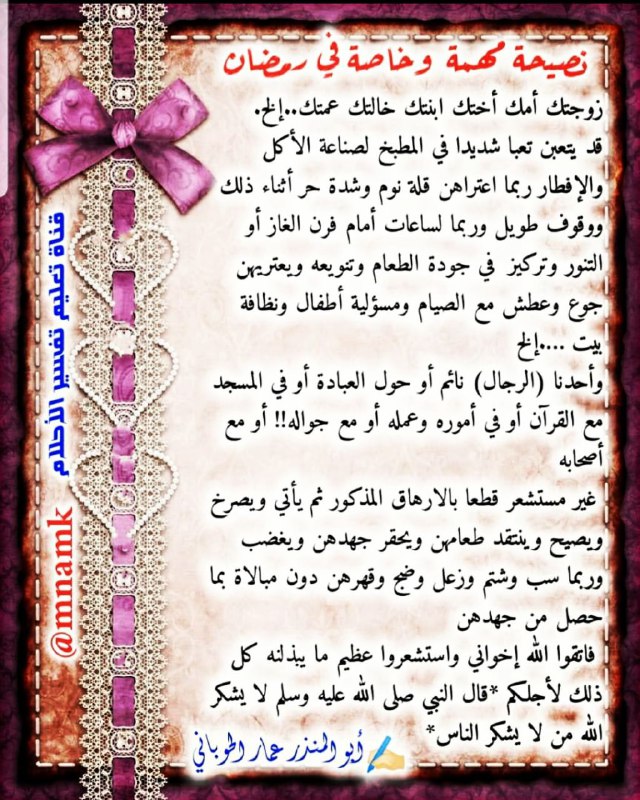 نصيحة مهمة وخاصة في رمضان
زوجتك أمك أختك ابنتك خالتك عمتك..إلخ.
قد يتعبن تعبا شديدا في المطبخ لصناعة الأكل
والإفطار ربما اعتراهن قلة نوم وشدة حر أثناء ذلك
ووقوف طويل وربما لساعات أمام فرن الغاز أو
التنور وتركيز في جودة الطعام وتنويعه ويعتريهن
جوع وعطش مع الصيام ومسؤلية أطفال ونظافة
بيت ....إلخ
وأحدنا (الرجال) نائم أو حول العبادة أو في المسجد
مع القرآن أو في أموره وعمله أو مع جواله!! أو مع
أصحابه
غير مستشعر قطعا بالارهاق المذكور ثم يأتي ويصرخ
ويصيح وينتقد طعامهن ويحقر جهدهن ويغضب
وربما سب وشتم وزعل وضج وقهرهن دون مبالاة بما
حصل من جهدهن
فاتقوا الله إخواني واستشعروا عظيم ما يبذلنه كل
ذلك لأجلكم *قال النبي صلى الله عليه وسلم لا يشكر
الله من لا يشكر الناس*
✍️أبو المنذر عمار الحوباني
قناة تعليم تفسير الأحلام
@mnamk